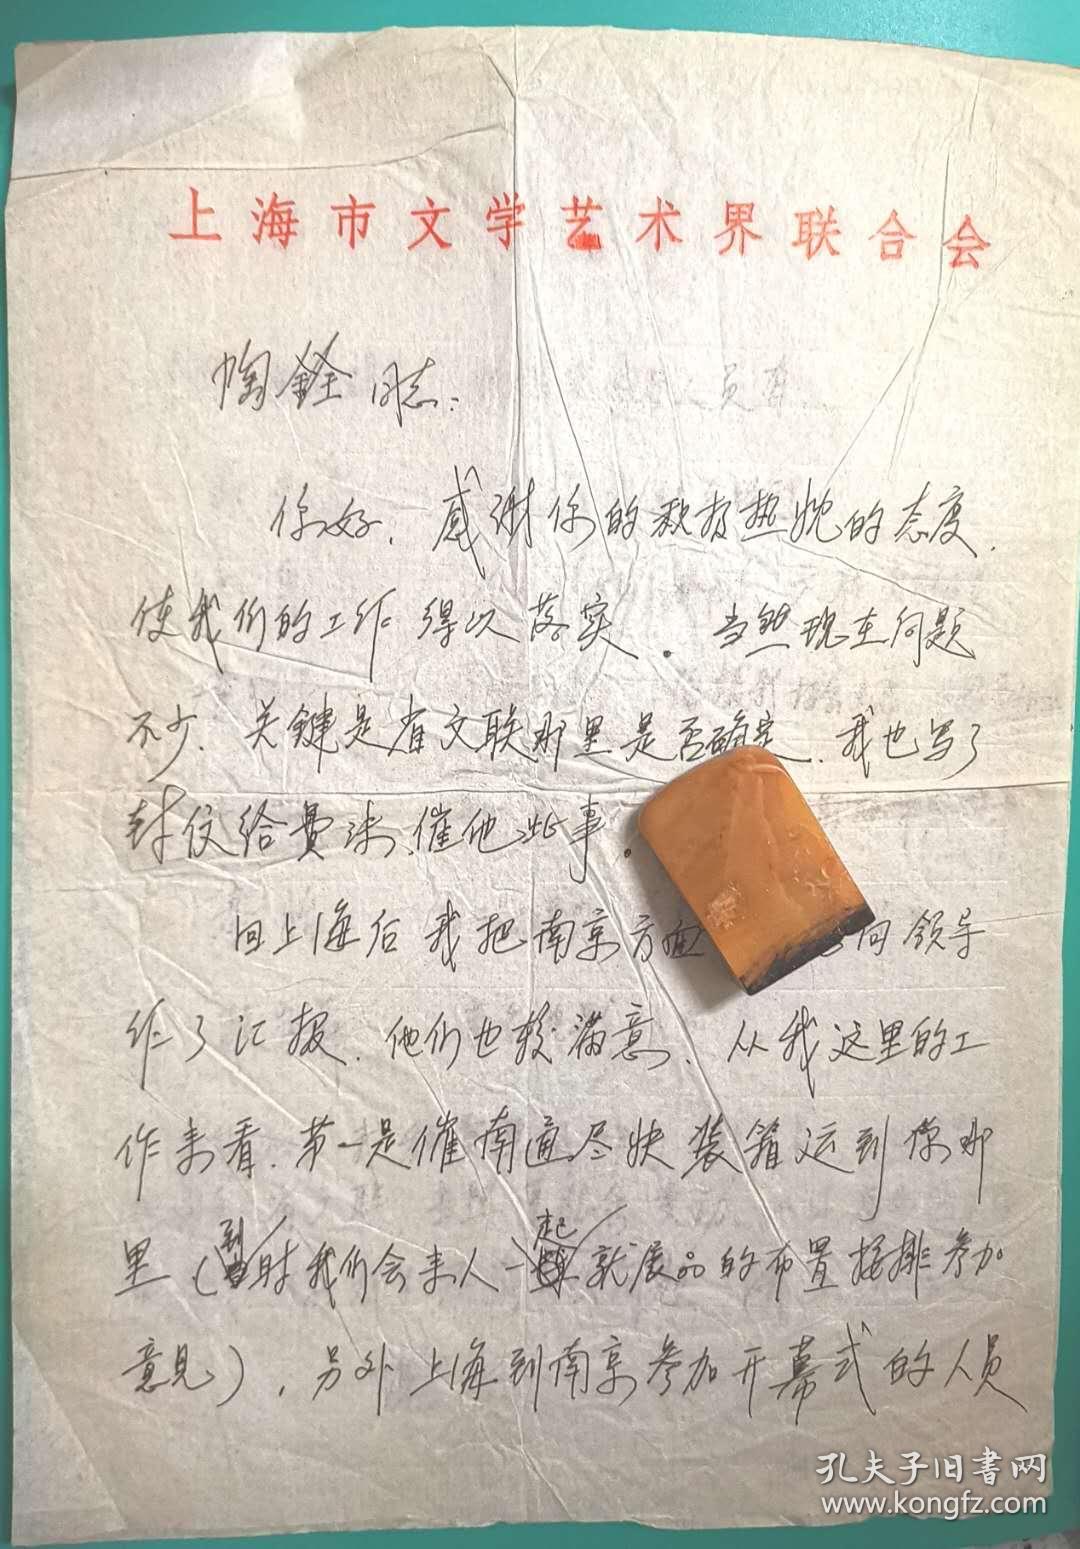 上海市文学艺术界联合会
陶铨同志：
你好，感谢你的积极热忱的态度，
使我们的工作得以落实。当然现在问题
不少，关键是省文联那里是否确定，我也写了
封信给费涞，催他此事。
回上海后我把南京方面 向领导
作了汇报，他们也较满意，从我这里的工
作来看，第一是催南通尽快装箱运到你那
里（到时我们会来人一起就展品的布置接排参加
意见），另外上海到南京参加开幕式的人员
孔夫子旧书网
www.kongfz.com